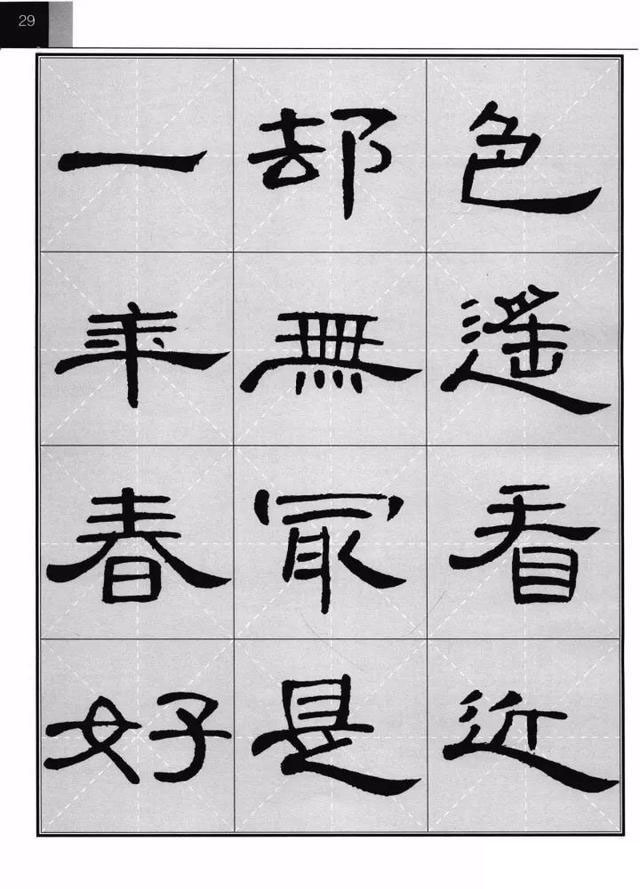 29
色遙看近
却無冣是
一年春好